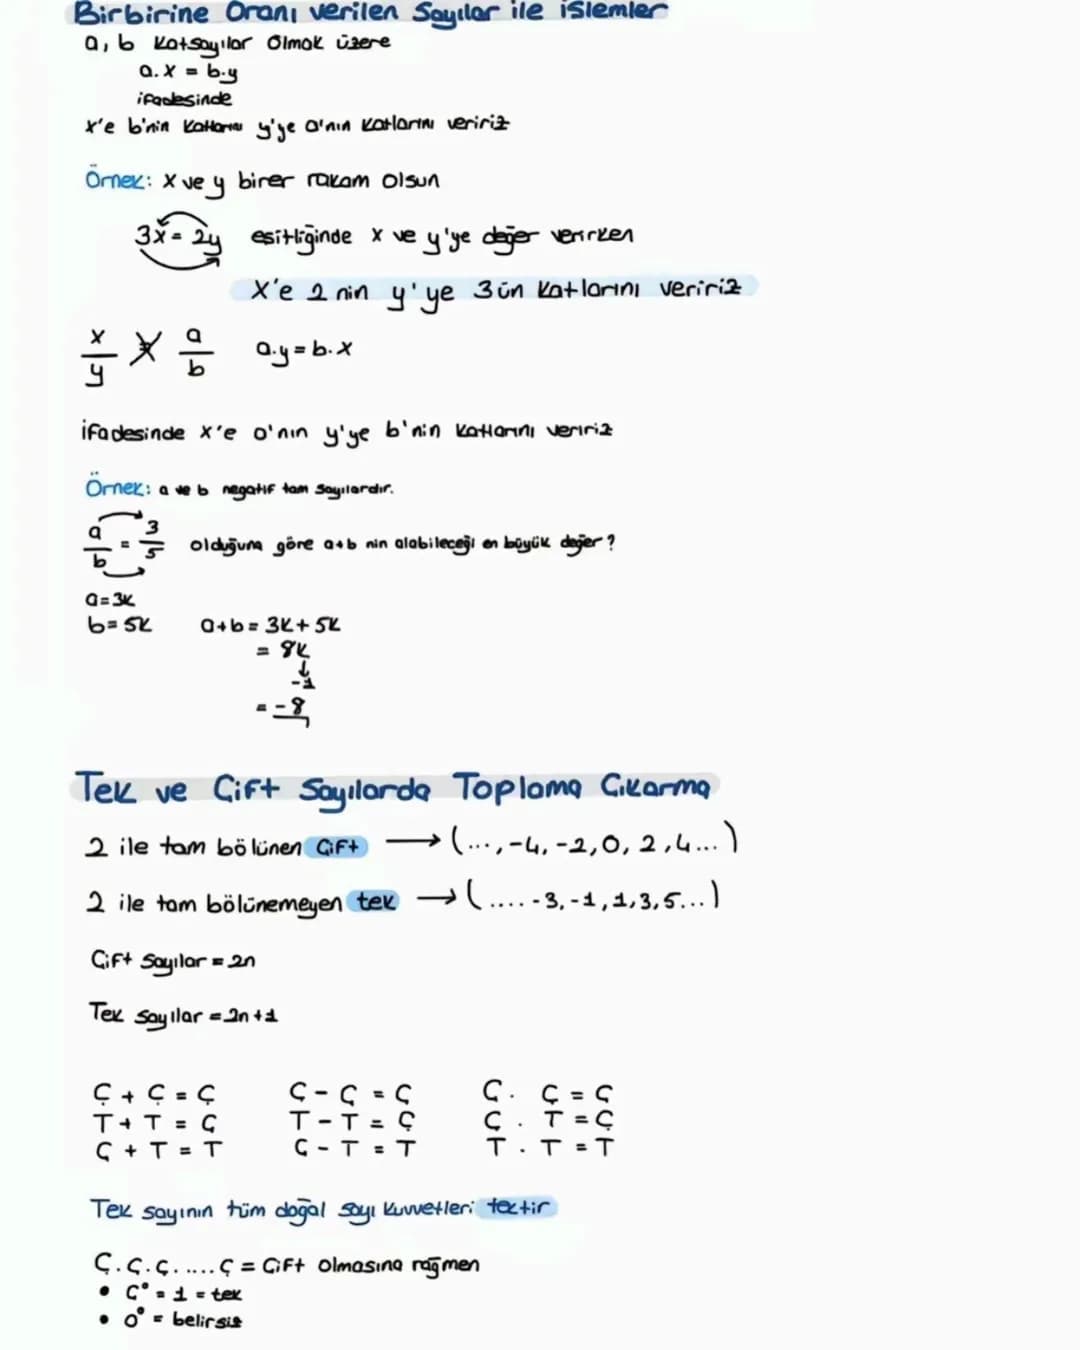 Birbirine Oranı verilen Sayılar ile işlemler
a, b katsayılar olmak üzere
a.x = b.y
ifadesinde
x'e b'nin katlarını y'ye a'nın katlarını veririz
Örnek: x ve y birer rakam olsun
3x = 2y eşitliğinde x ve y'ye değer verirken
x'e 2 nin y'ye 3 ün katlarını veririz
x/y = a/b a.y = b.x
ifadesinde x'e a'nın y'ye b'nin katlarını veririz
Örnek: a ve b negatif tam sayılardır.
a/b = 3/5 olduğuna göre a+b nin alabileceği en büyük değer?
a=3k
b=5k a+b = 3k+5k
= 8k
↓
-1
= -8
Tek ve Çift Sayılarda Toplama Çıkarma
2 ile tam bölünen Çift → (...,-4,-2,0,2,4...)
2 ile tam bölünemeyen tek → (....-3,-1,1,3,5...)
Çift Sayılar = 2n
Tek Sayılar = 2n+1
Ç + Ç = Ç Ç - Ç = Ç Ç . Ç = Ç
T + T = Ç T - T = Ç Ç . T = Ç
Ç + T = T Ç - T = T T . T = T
Tek sayının tüm doğal sayı kuvvetleri tektir
Ç.Ç.Ç.....Ç = Çift olmasına rağmen
• Ç⁰ = 1 = tek
• 0⁰ = belirsiz